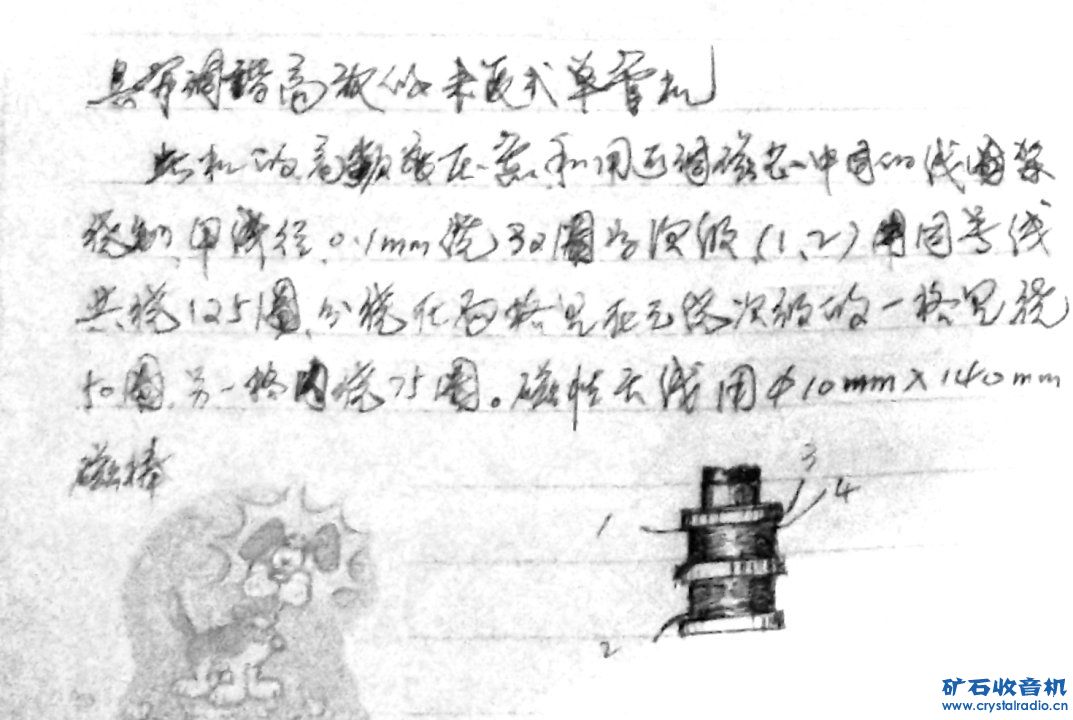 具有调谐高放的来复式单管机
此机的高频变压器利用可调磁芯中周的线圈架
绕制,用线径0.1mm绕30圈为次级(1、2)用同号线
共绕125圈,分绕在两格里在已绕次级的一格里绕
50圈,另一格内绕75圈。磁性天线用φ10mm×140mm
磁棒
3
4
1
2
矿石收音机
www.crystalradio.cn